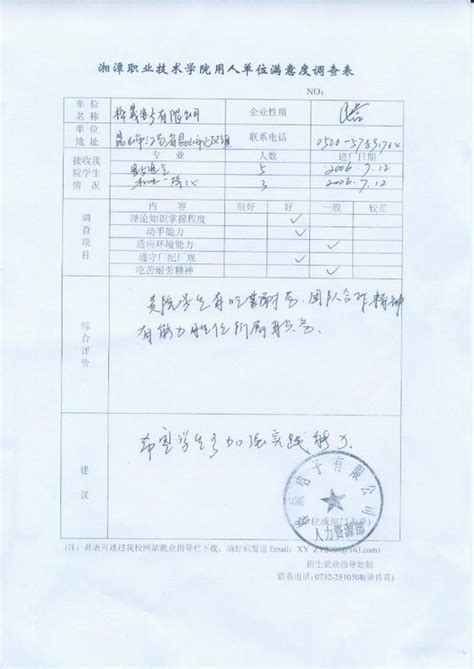 湘潭职业技术学院用人单位满意度调查表
NO:
单位名称 电子有限公司 企业性质 民营
单位地址 昆山市 联系电话 0520-578
接收我院学生情况 专业 人数 进厂日期
5 2006.7.12
机电一 3 2006.7.12
调查项目 内容 很好 好 一般 较差
理论知识掌握程度 ✓
动手能力 ✓
适应环境能力 ✓
遵守厂纪厂规 ✓
吃苦耐劳精神 ✓
综合评价
贵院学生有吃苦耐劳、团队合作精神
有能力胜任所属职务。
建议
希望学生多加强实践能力
电子有限公司
人力资源部
(注: 此表可通过我校网站就业指导栏下载, 填好后发送 Email: @163.com)
招生就业指导处制
联系电话: 0732-2510508(兼传真)